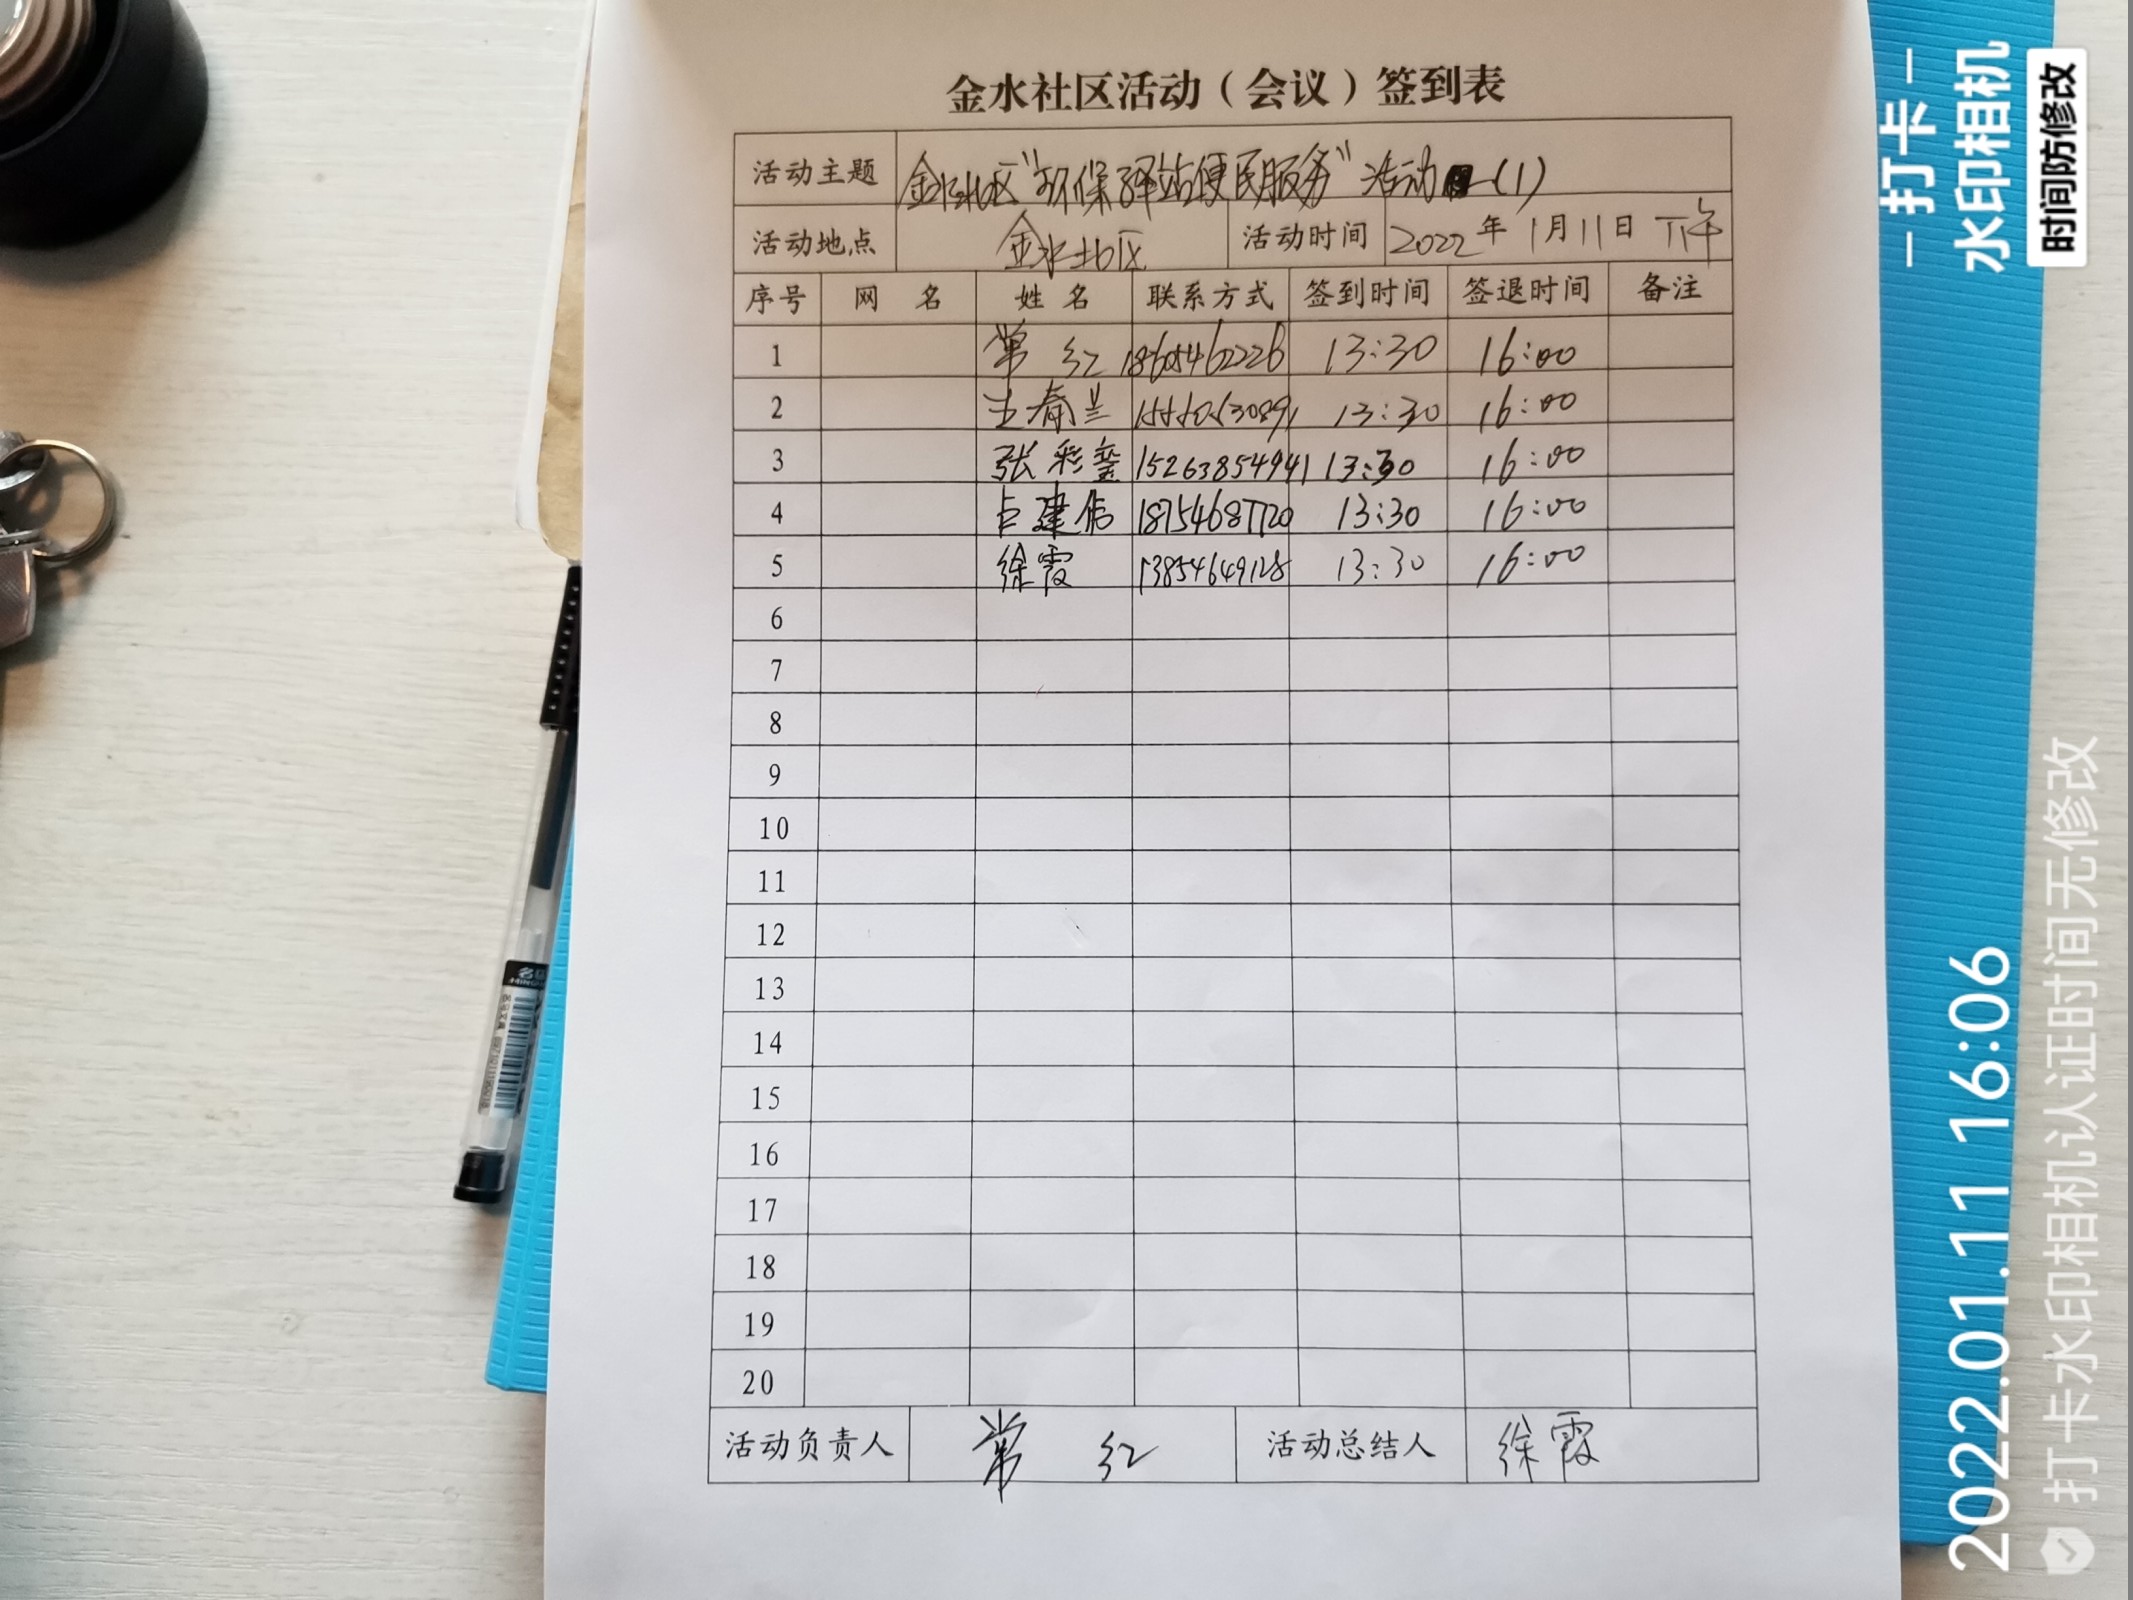 金水社区活动（会议）签到表
活动主题 金水北区“环保驿站便民服务”活动 (1)
活动地点 金水北区 活动时间 2022年1月11日 下午
序号 网 名 姓 名 联系方式 签到时间 签退时间 备注
1 常 红 18605462226 13:30 16:00
2 王春兰 13:30 16:00
3 张彩銮 15263854941 13:30 16:00
4 卢建伟 18754687720 13:30 16:00
5 徐霞 13854649128 13:30 16:00
6
7
8
9
10
11
12
13
14
15
16
17
18
19
20
活动负责人 常 红 活动总结人 徐霞
打卡
水印相机
时间防修改
2022.01.11 16:06
打卡水印相机认证时间无修改